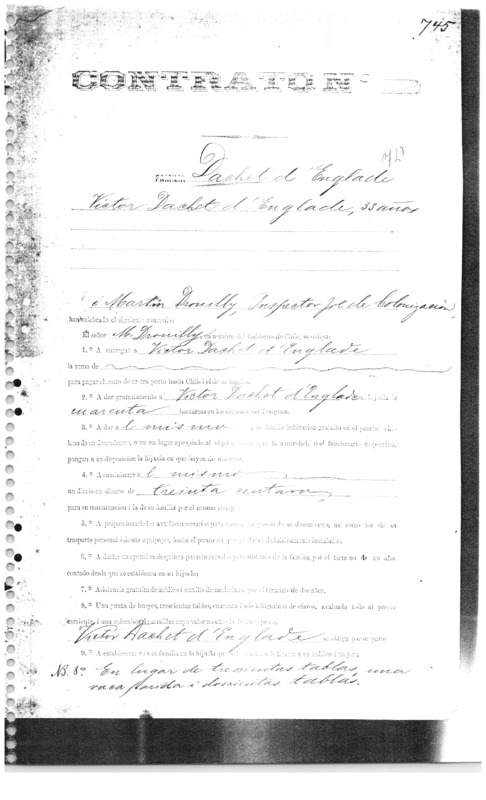 745
CONTRATO N°
72
FAMILIA Dachet d'Englade
Victor Dachet d'Englade, 33 años
i Martin Drouilly, Inspector Jral de Colonización,
han celebrado el siguiente contrato:
El señor M. Drouilly, en nombre del Gobierno de Chile, se obliga:
1.° A entregar a Victor Dachet d'Englade
la suma de
para pagar el costo de su trasporte hasta Chile i el de su familia.
2.° A dar gratuitamente a Victor Dachet d'Englade una hijuela de
cuarenta hectáreas en los terrenos del Traiguen.
3.° A dar al mismo i su familia habitacion gratuita en el puerto chi-
leno de su desembarco, o en un lugar apropiado al objeto, hasta que la autoridad, o el funcionario respectivo,
pongan a su disposicion la hijuela en que hayan de ubicarse.
4.° A suministrar al mismo
un diario en dinero de treinta centavos,
para su manutencion i la de su familia por el mismo tiempo.
5.° A proporcionarle los auxilios necesarios para los gastos de su desembarco, asi como los de su
trasporte personal i de sus equipajes, hasta el punto en que quedaran definitivamente instalados.
6.° A darle una pension de quince pesos mensuales para sustento de la familia, por el término de un año,
contado desde que se establezca en su hijuela;
7.° Asistencia gratuita de médico i auxilio de medicinas, por el término de dos años.
8.° Una yunta de bueyes, trescientas tablas, cuarenta i seis kilógramos de clavos, avaluado todo al precio
corriente, i una coleccion de semillas cuyo valor no exceda de cinco pesos.
Victor Dachet d'Englade se obliga por su parte:
9.° A establecerse con su familia en la hijuela
NB. 8° En lugar de trescientas tablas, una
vaca parida i doscientas tablas.